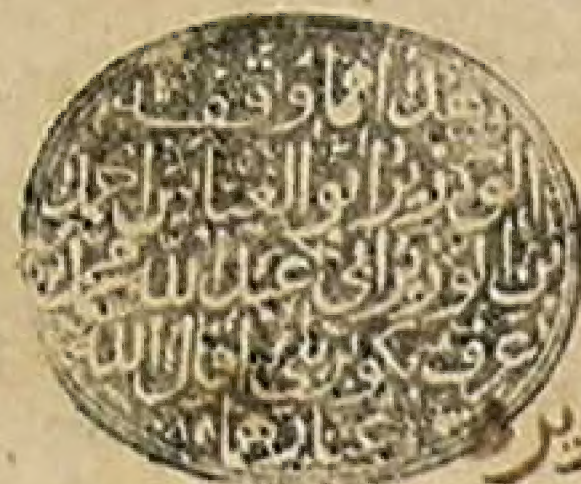 هذا مما وقفه
الوزير أبو العباس أحمد
بن الوزير أبي عبد الله محمد
عرف بكوبريلي أقال الله
عثارهما